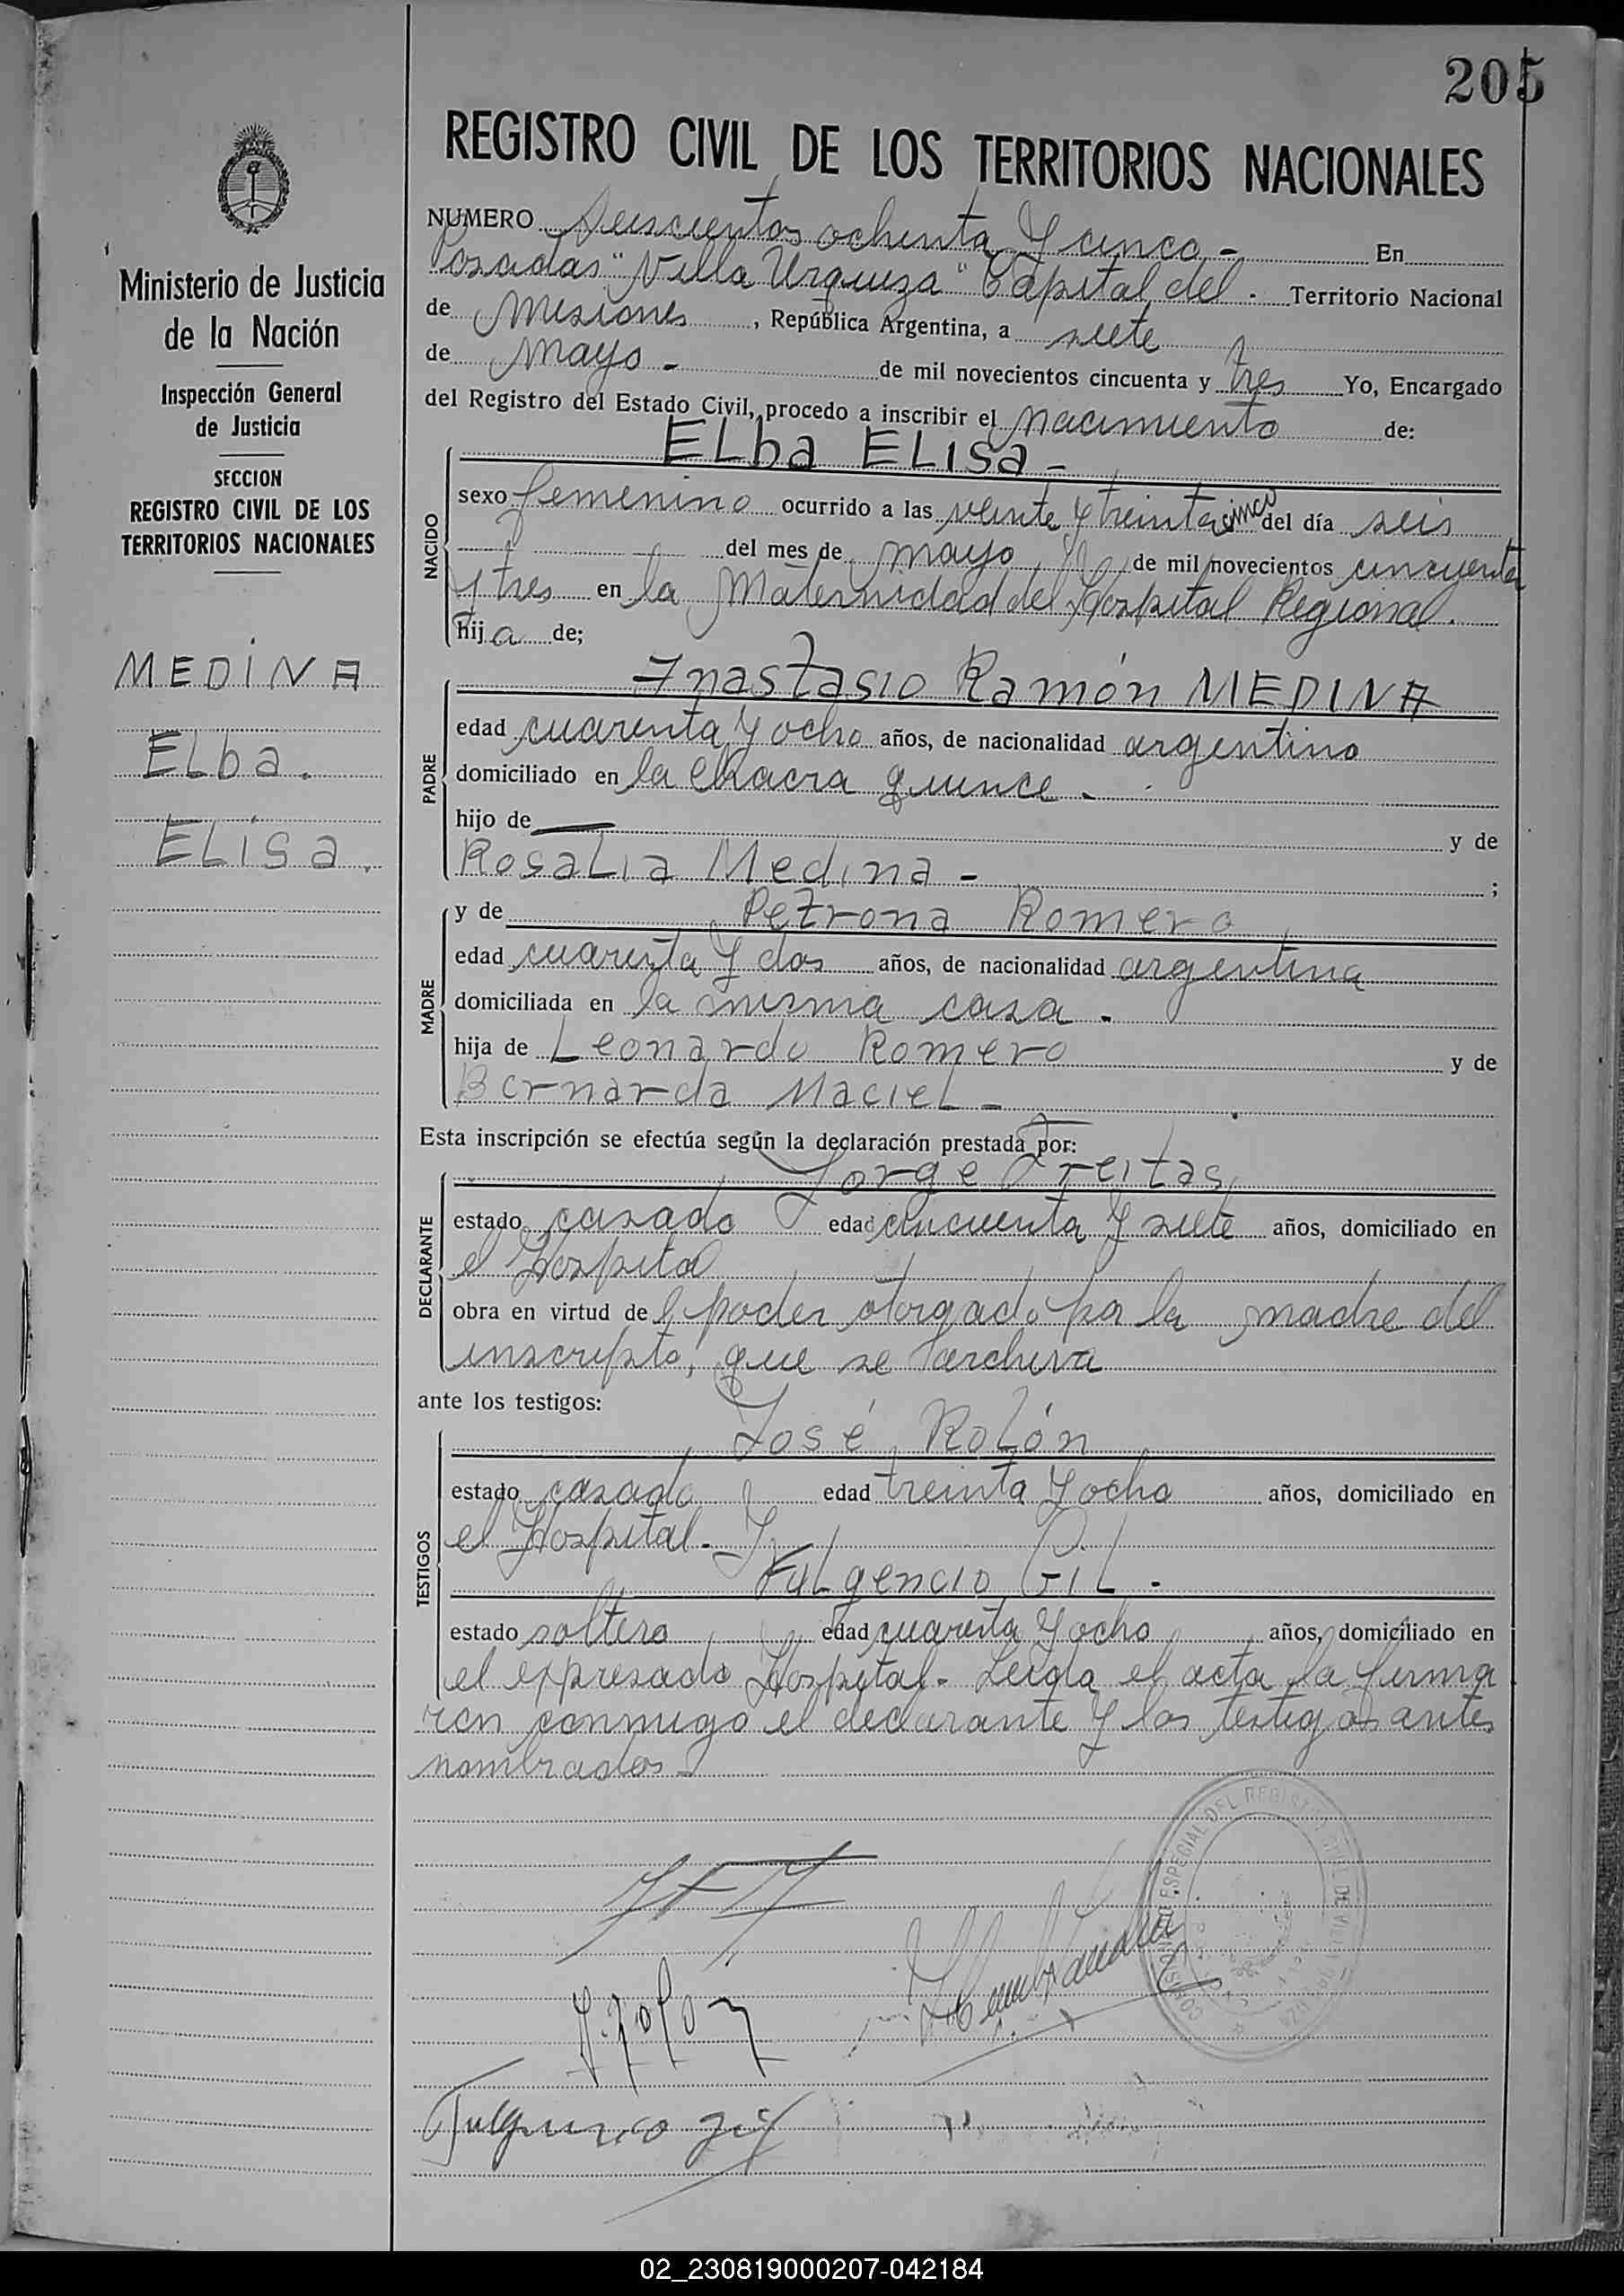 205
REGISTRO CIVIL DE LOS TERRITORIOS NACIONALES
NUMERO Seiscientos ochenta y cinco - En
Posadas "Villa Urquiza" Capital del. Territorio Nacional
de Misiones, República Argentina, a siete
de mayo - de mil novecientos cincuenta y tres Yo, Encargado
del Registro del Estado Civil, procedo a inscribir el nacimiento de:
Elba Elisa -
NACIDO
sexo femenino ocurrido a las veinte y treinta cinco del día seis
del mes de mayo de mil novecientos cincuenta
y tres en la Maternidad del Hospital Regional.
hija de;
Ministerio de Justicia
de la Nación
Inspección General
de Justicia
SECCION
REGISTRO CIVIL DE LOS
TERRITORIOS NACIONALES
MEDINA
Elba.
Elisa.
PADRE
Anastasio Ramón MEDINA
edad cuarenta y ocho años, de nacionalidad argentino
domiciliado en la chacra quince -
hijo de — y de
Rosalia Medina - ;
MADRE
y de Petrona Romero
edad cuarenta y dos años, de nacionalidad argentina
domiciliada en la misma casa -
hija de Leonardo Romero y de
Bernarda Maciel -
Esta inscripción se efectúa según la declaración prestada por:
DECLARANTE
Jorge Freitas
estado casado edad cincuenta y siete años, domiciliado en
el Hospital
obra en virtud de poder otorgado por la madre del
inscripto, que se archiva
ante los testigos:
TESTIGOS
José Rolón
estado casado edad treinta y ocho años, domiciliado en
el Hospital - y
Fulgencio Gil -
estado soltero edad cuarenta y ocho años, domiciliado en
el expresado Hospital - Leida el acta la firma
ron conmigo el declarante y los testigos antes
nombrados -
J. Rolon
Fulgencio Gil
02_230819000207-042184